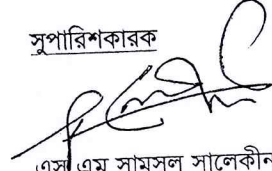 সুপারিশকারক
এস এম সামসুল সালেকীন